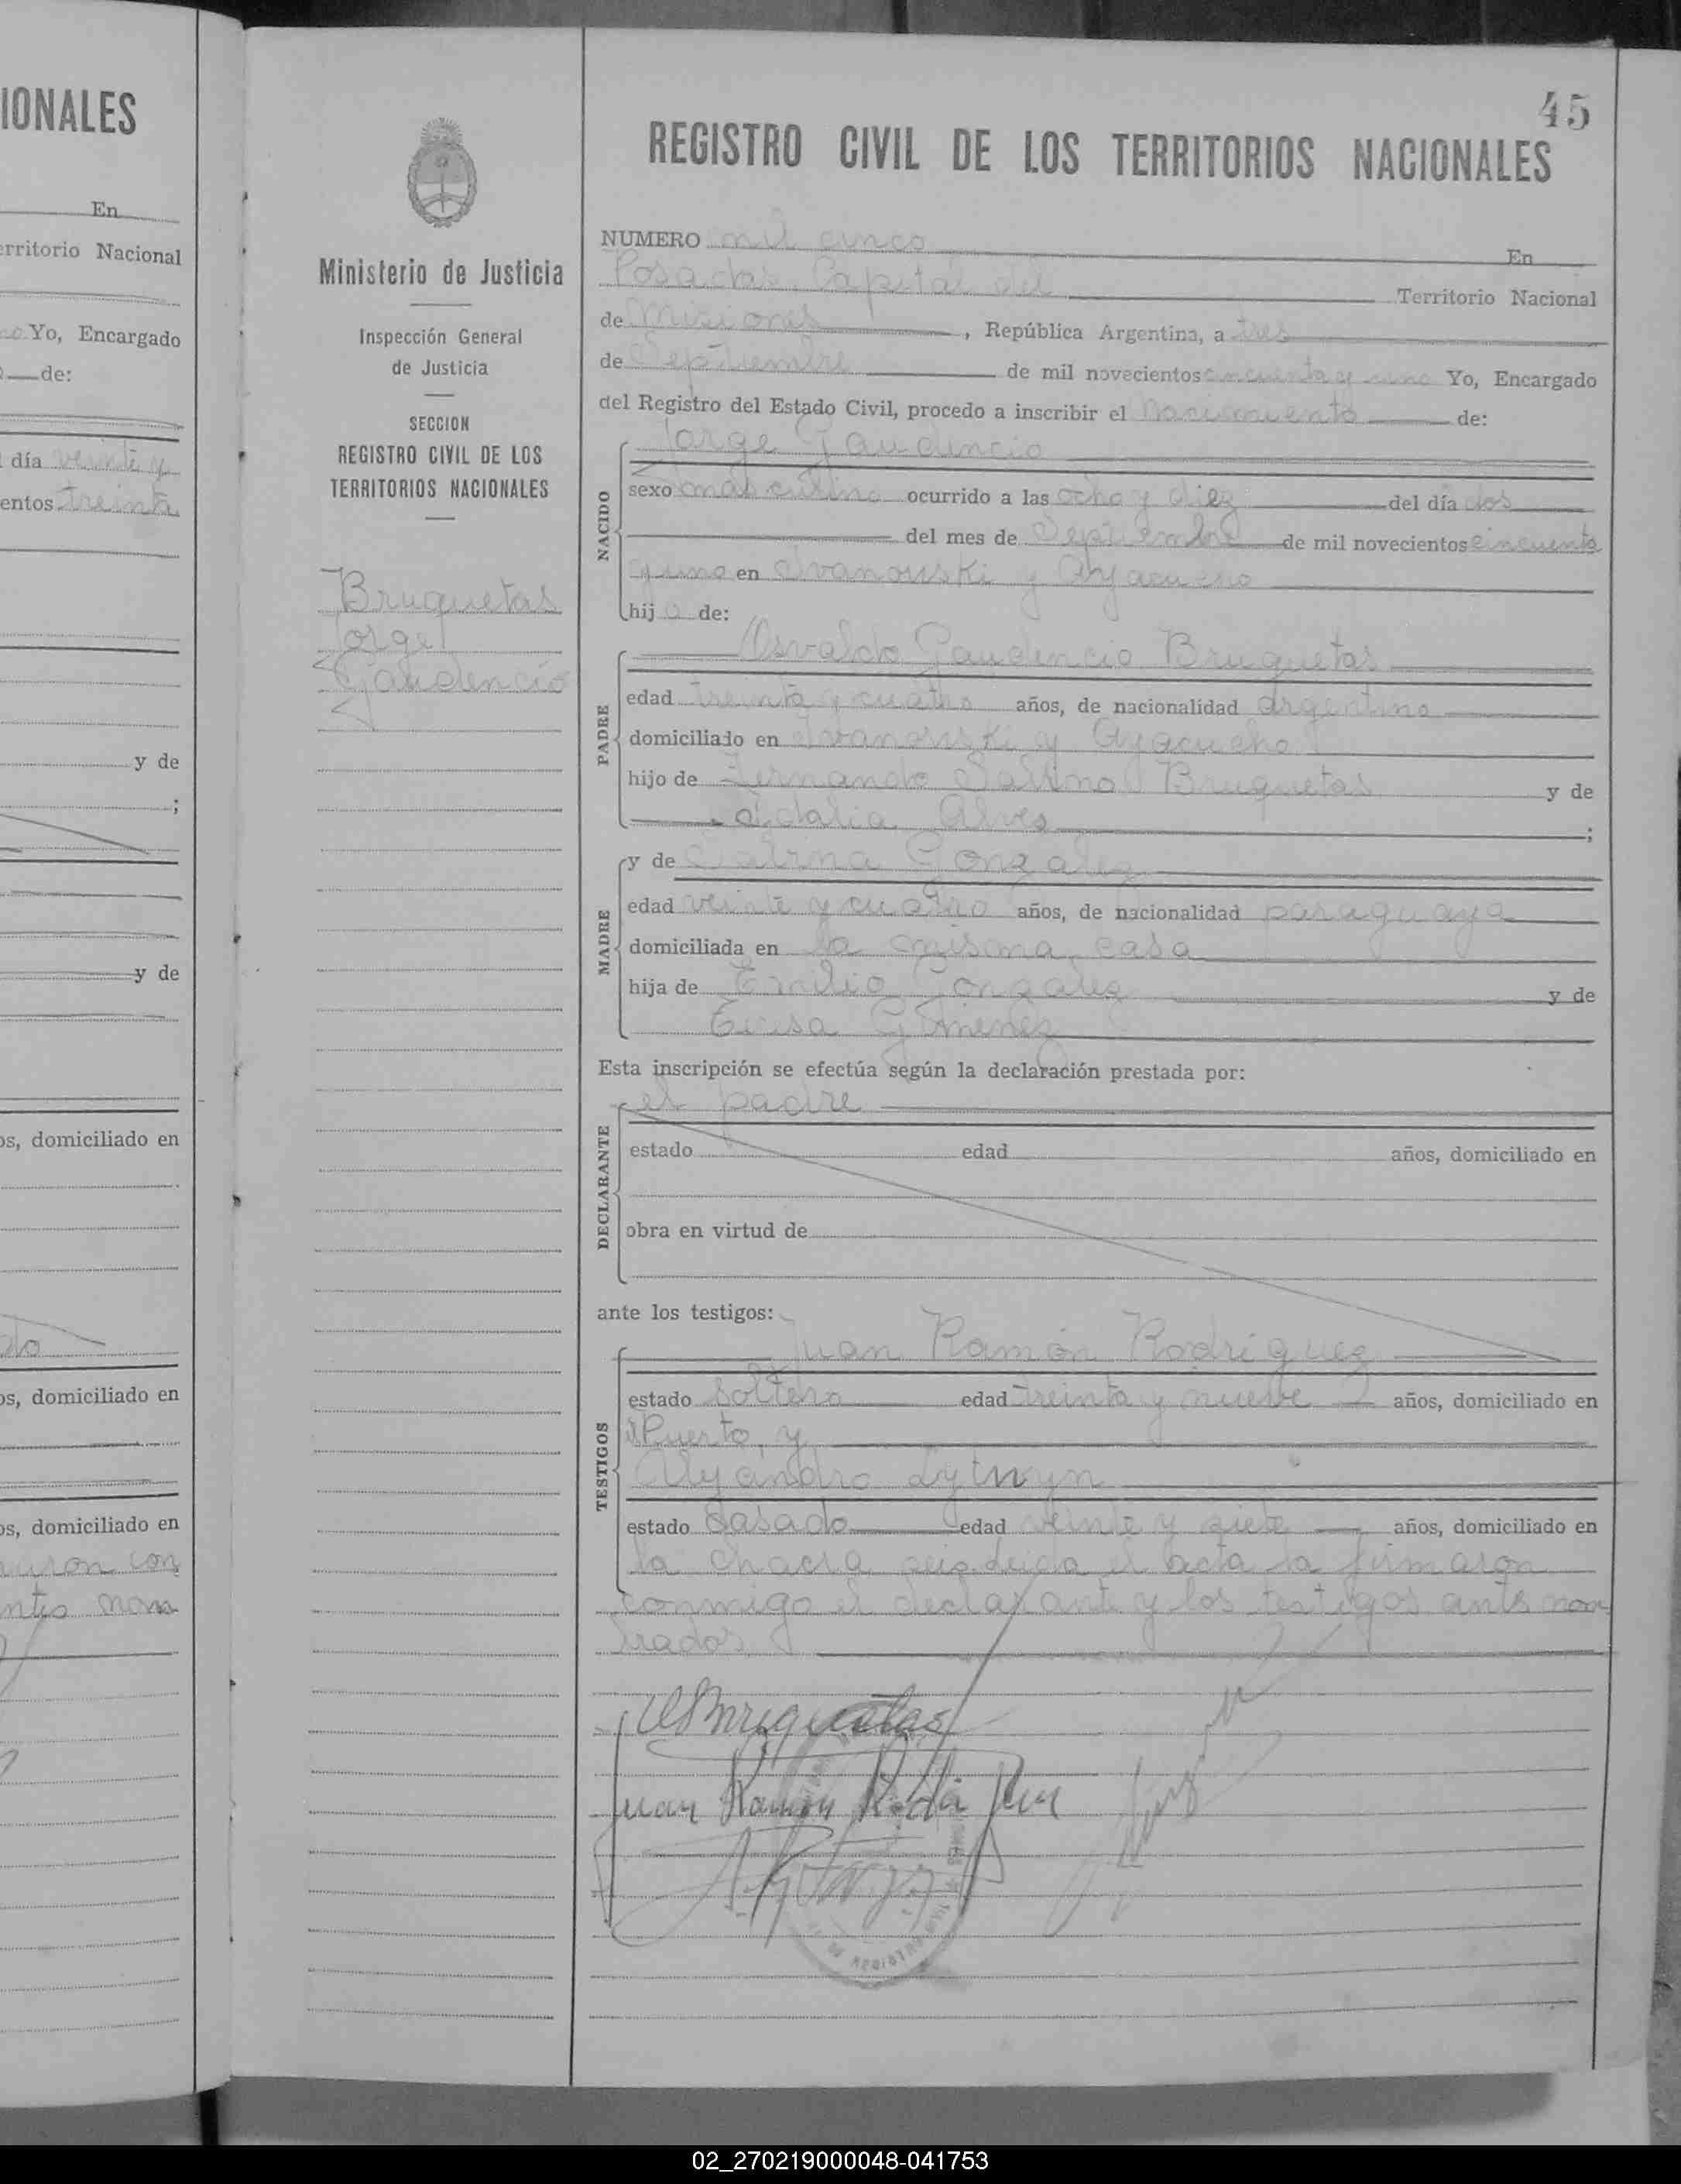 IONALES
En
erritorio Nacional
Yo, Encargado
de:
día veinte y
entos treinta
y de
;
y de
os, domiciliado en
do
os, domiciliado en
os, domiciliado en
maron con
antes nom
Ministerio de Justicia
Inspección General
de Justicia
SECCION
REGISTRO CIVIL DE LOS
TERRITORIOS NACIONALES
Bruquetas
Jorge
Gaudencio
45
REGISTRO CIVIL DE LOS TERRITORIOS NACIONALES
NUMERO mil cinco En
Posadas, Capital del Territorio Nacional
de Misiones, República Argentina, a tres
de Septiembre de mil novecientos cincuenta y uno Yo, Encargado
del Registro del Estado Civil, procedo a inscribir el nacimiento de:
Jorge Gaudencio
NACIDO
sexo masculino ocurrido a las ocho y diez del día dos
del mes de Septiembre de mil novecientos cincuenta
y uno en Ivanowski y Ayacucho
hijo de:
PADRE
Osvaldo Gaudencio Bruquetas
edad treinta y cuatro años, de nacionalidad argentina
domiciliado en Ivanowski y Ayacucho
hijo de Fernando Bruquetas y de
Idalia Alves;
MADRE
y de Gonzalez
edad veinte y cuatro años, de nacionalidad paraguaya
domiciliada en la misma casa
hija de Emilio Gonzalez y de
Gimenez
Esta inscripción se efectúa según la declaración prestada por:
el padre
DECLARANTE
estado edad años, domiciliado en
obra en virtud de
ante los testigos:
TESTIGOS
Juan Ramón Rodriguez
estado Soltero edad treinta y nueve años, domiciliado en
el Puerto, y
Alejandro Lytwyn
estado Casado edad veinte y siete años, domiciliado en
la chacra leida el acta la firmaron
conmigo el declarante y los testigos ants nom
brados.
Bruquetas
Juan Ramón
02_270219000048-041753